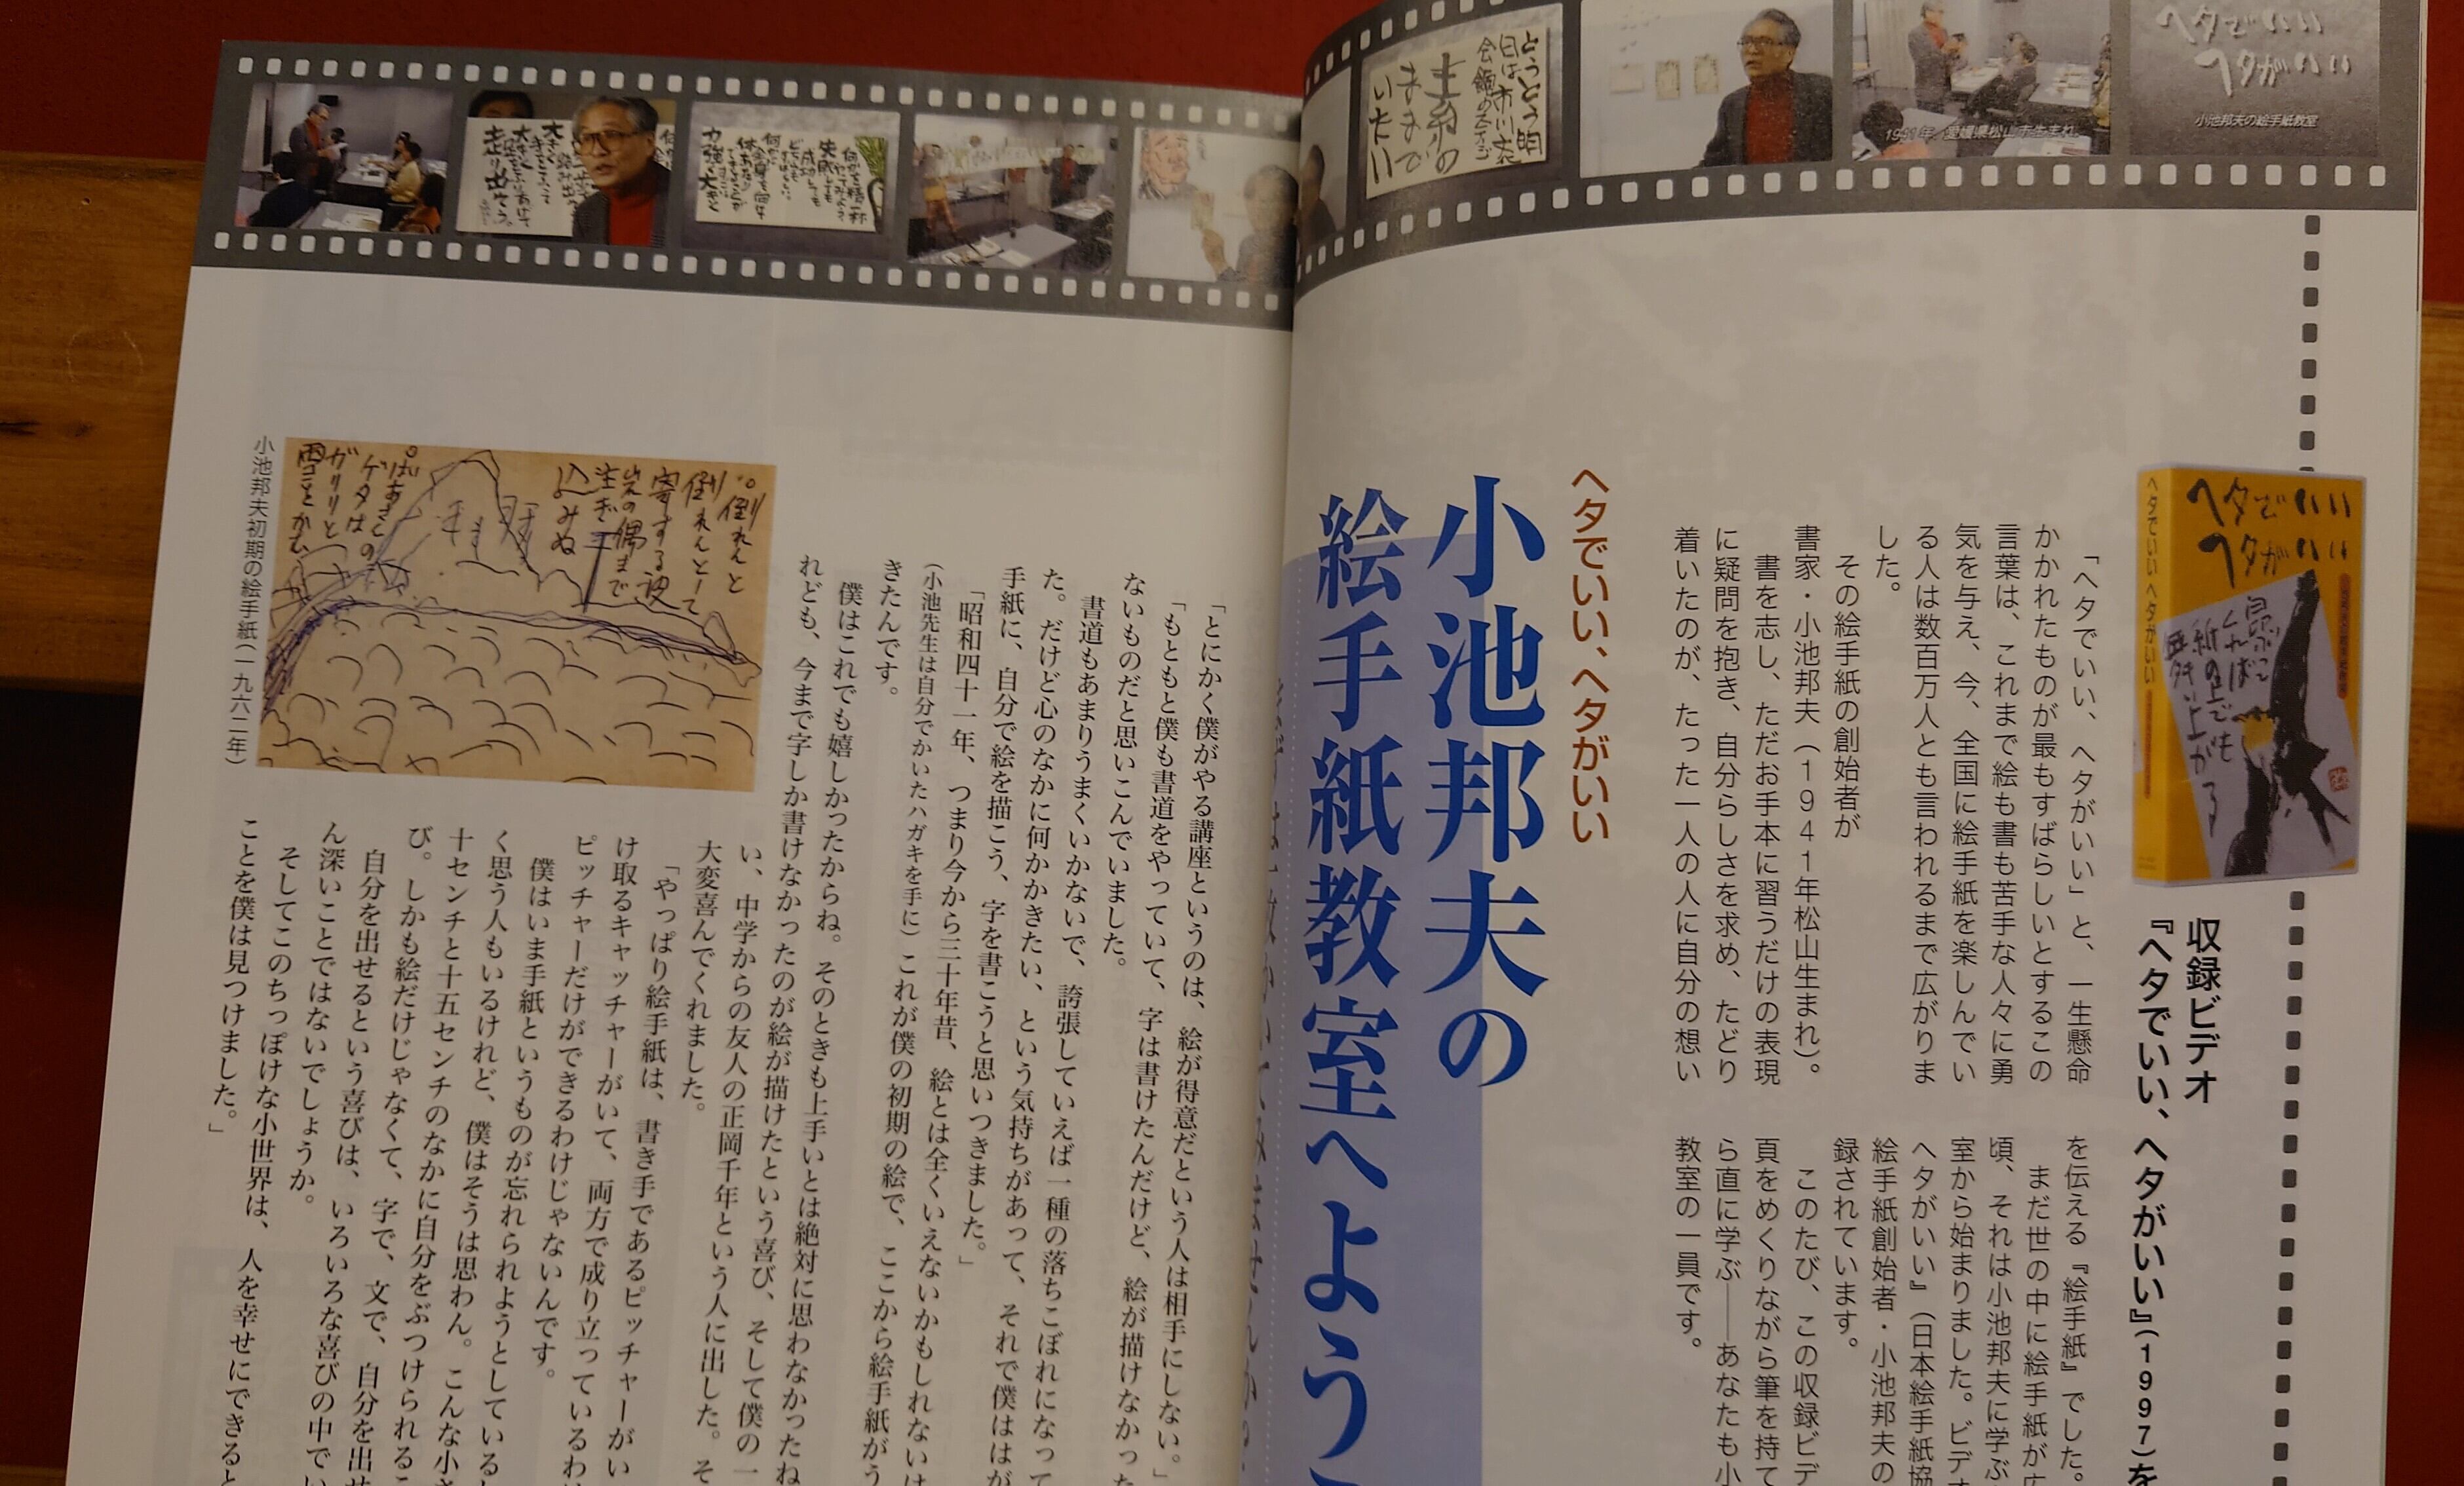 ヘタでいい
ヘタがいい
小池邦夫の絵手紙教室
1941年 愛媛県松山市生まれ
ヘタでいい
ヘタがいい
ヘタでいい ヘタがいい
収録ビデオ
『ヘタでいい、ヘタがいい』(1997)を
「ヘタでいい、ヘタがいい」と、一生懸命
かかれたものが最もすばらしいとするこの
言葉は、これまで絵も書も苦手な人々に勇
気を与え、今、全国に絵手紙を楽しんでい
る人は数百万人とも言われるまで広がりま
した。
その絵手紙の創始者が
書家・小池邦夫(1941年松山生まれ)。
書を志し、ただお手本に習うだけの表現
に疑問を抱き、自分らしさを求め、たどり
着いたのが、たった一人の人に自分の想い
を伝える『絵手紙』でした。
まだ世の中に絵手紙が広
頃、それは小池邦夫に学ぶ
室から始まりました。ビデオ
ヘタがいい』(日本絵手紙協
絵手紙創始者・小池邦夫の
録されています。
このたび、この収録ビデ
頁をめくりながら筆を持て
ら直に学ぶ——あなたも小
教室の一員です。
ヘタでいい、ヘタがいい
小池邦夫の
絵手紙教室へよう
「とにかく僕がやる講座というのは、絵が得意だという人は相手にしない。」
「もともと僕も書道をやっていて、字は書けたんだけど、絵が描けなかった
ないものだと思いこんでいました。
書道もあまりうまくいかないで、誇張していえば一種の落ちこぼれになって
た。だけど心のなかに何かかきたい、という気持ちがあって、それで僕はが
手紙に、自分で絵を描こう、字を書こうと思いつきました。」
「昭和四十一年、つまり今から三十年昔、絵とは全くいえないかもしれないけ
(小池先生は自分でかいたハガキを手に)これが僕の初期の絵で、ここから絵手紙がう
きたんです。
僕はこれでも嬉しかったからね。そのときも上手いとは絶対に思わなかったね
れども、今まで字しか書けなかったのが絵が描けたという喜び、そして僕の一
い、中学からの友人の正岡千年という人に出した。そ
大変喜んでくれました。
「やっぱり絵手紙は、書き手であるピッチャーがい
け取るキャッチャーがいて、両方で成り立っているわけ
ピッチャーだけができるわけじゃないんです。
僕はいま手紙というものが忘れられようとしているし
く思う人もいるけれど、僕はそうは思わん。こんな小さ
十センチと十五センチのなかに自分をぶつけられるこ
び。しかも絵だけじゃなくて、字で、文で、自分を出せ
自分を出せるという喜びは、いろいろな喜びの中でい
ん深いことではないでしょうか。
そしてこのちっぽけな小世界は、人を幸せにできると
ことを僕は見つけました。」
小池邦夫初期の絵手紙(一九六二年)